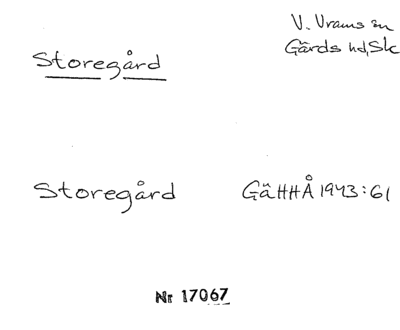 V. Vrams sn
Storegård
Gärds hd, Sk
Storegård GäHHÅ 1943:61
Nr 17067